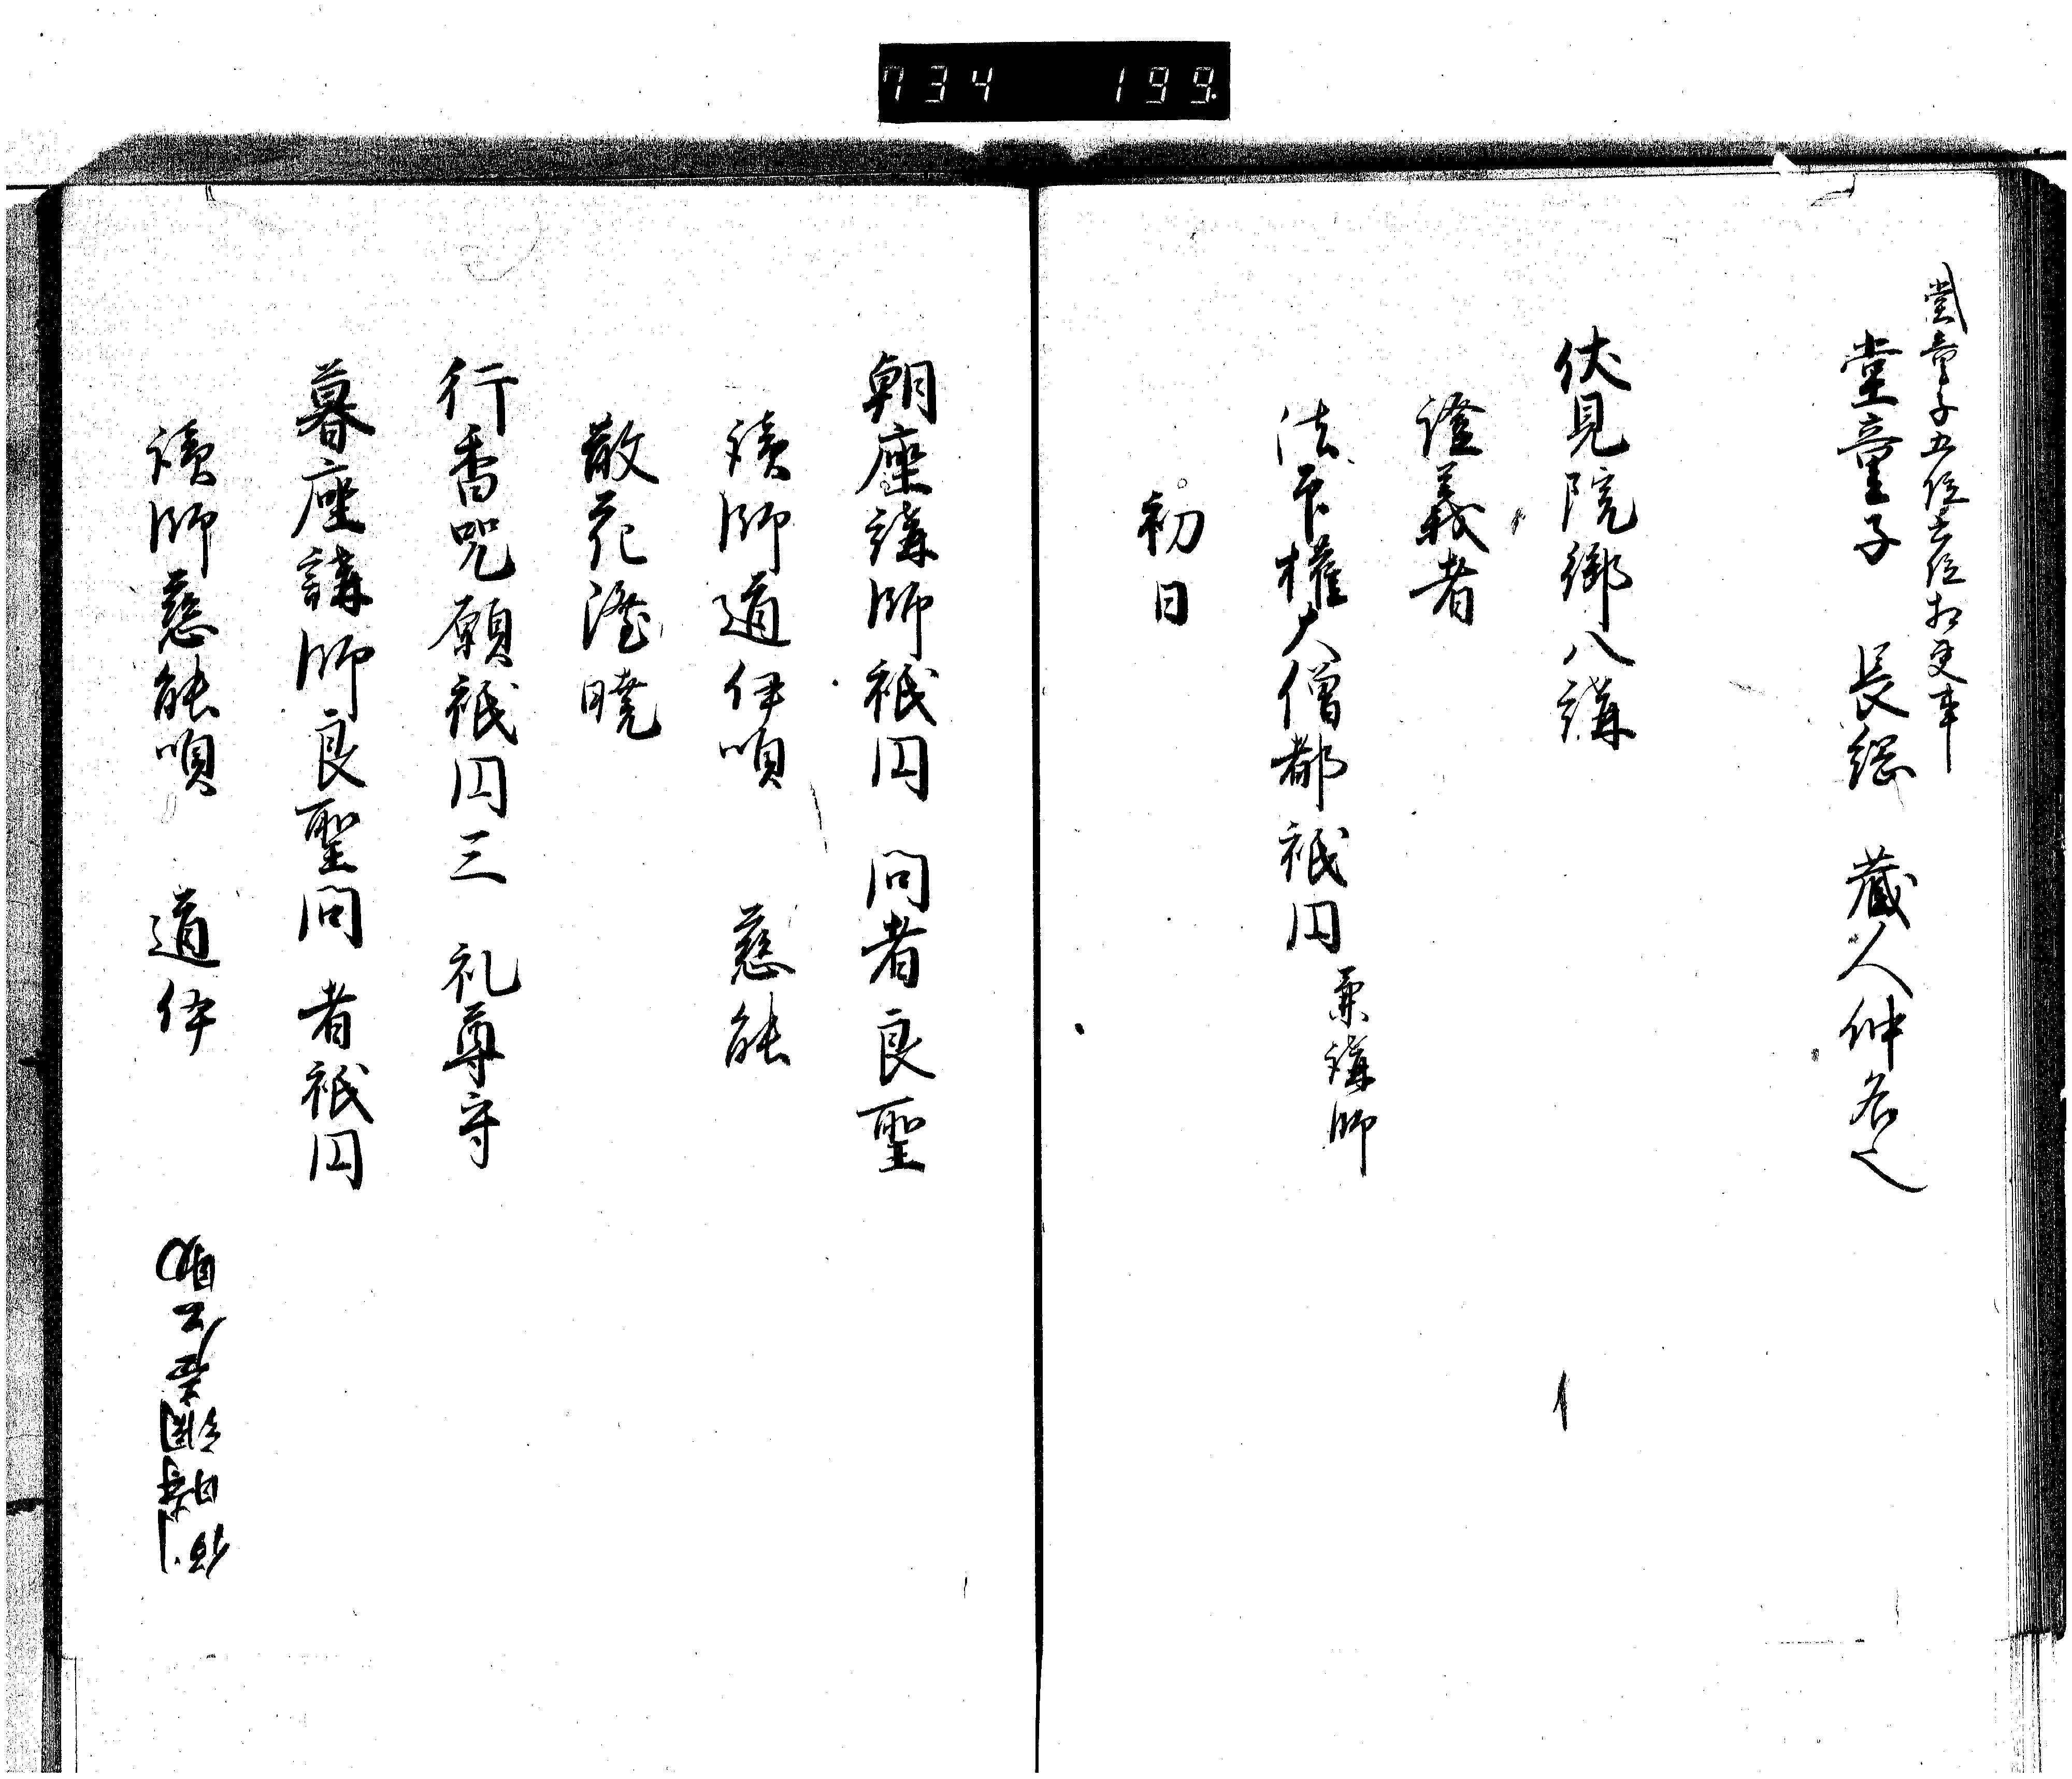 734 199
堂童子五位六位相交事
堂童子 長綱 蔵人仲
伏見院御八講
證義者
法印権大僧都祇円 兼講師
初日
朝座講師祇円 問者良聖
読師道伊唄 慈能
散花澄暁
行香呪願祇円三礼尊守
暮座講師良聖問者祇円
読師慈能唄 道伊